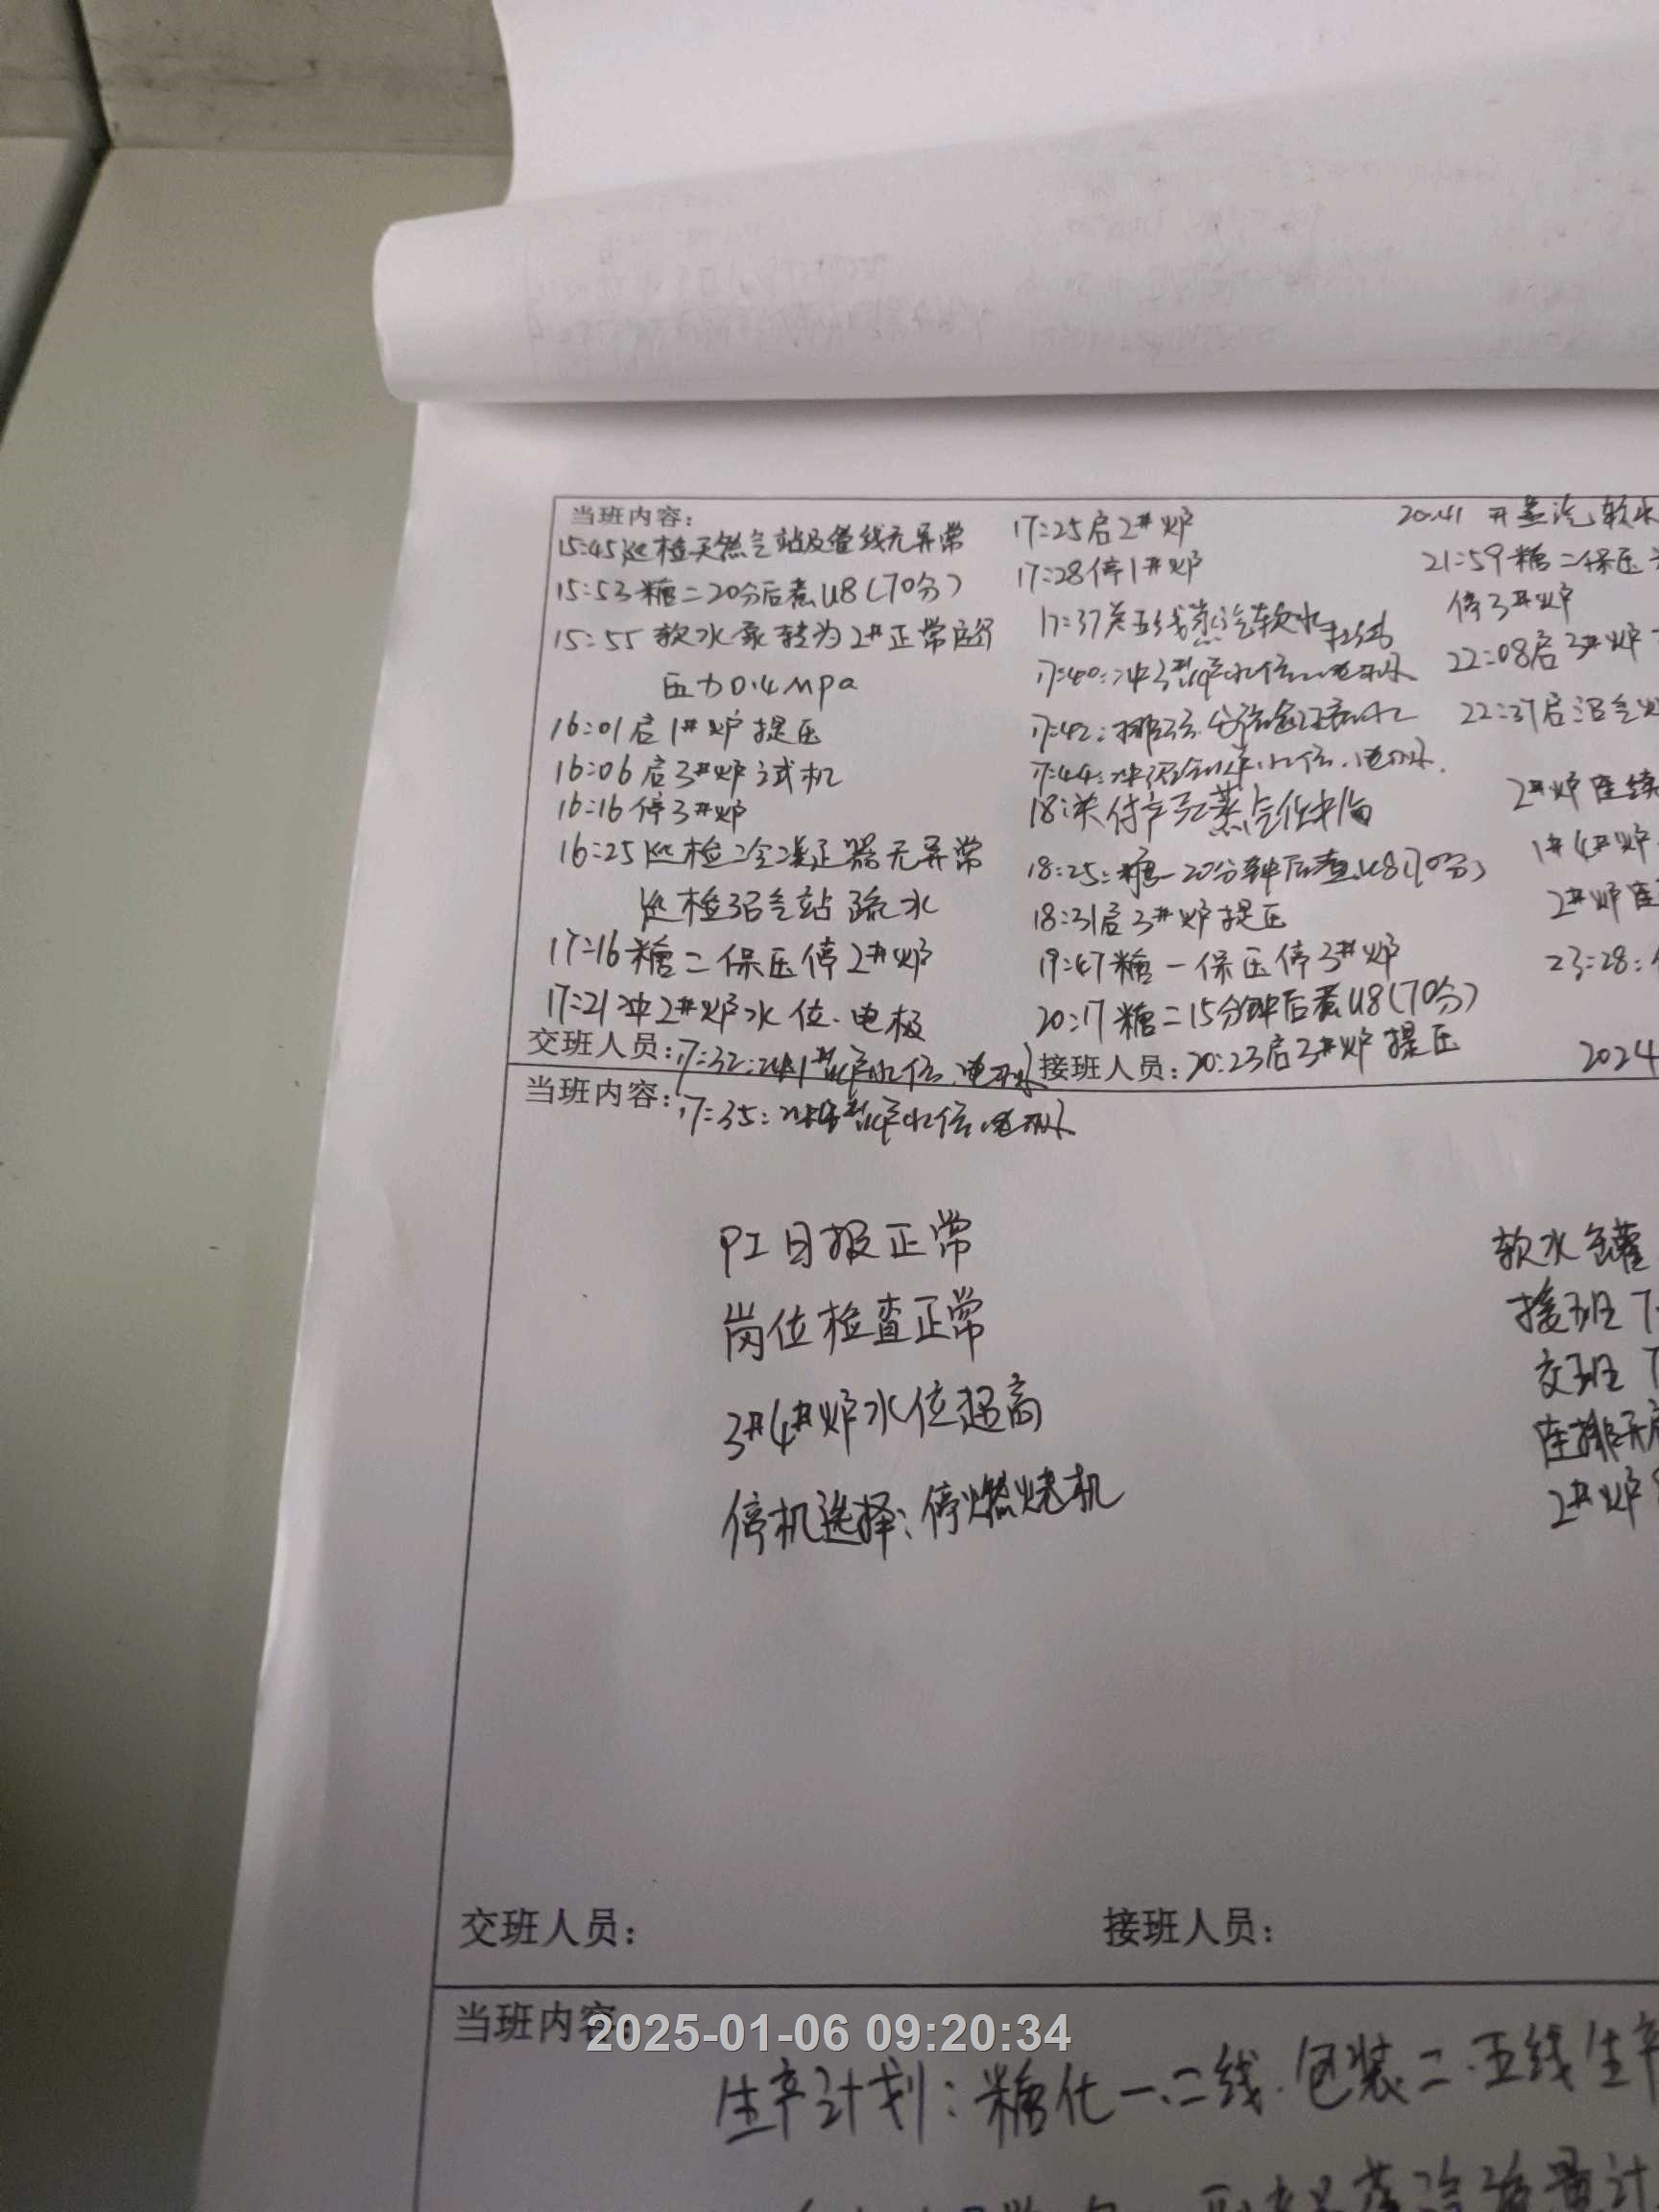 当班内容:
15:45巡检天然气站及管线无异常
15:53糖二20分后煮U8(70分)
15:55 软水泵转为2#正常运行
压力0.4Mpa
16:01启1#炉提压
16:06启3#炉试机
16:16停3#炉
16:25巡检冷凝器无异常
巡检沼气站疏水
17:16糖二保压停2#炉
17:21冲2#炉水位、电极
交班人员:
17:32:冲1#炉水位、电极
17:25启2#炉
17:28停1#炉
17:37关五线蒸汽软水
17:40:冲3#炉水位、电极
17:42:
17:44:冲沼气炉水位、电极
18:关付产品蒸汽
18:25:糖一20分钟后煮U8(70分)
18:31启3#炉提压
19:47糖一保压停3#炉
20:17糖二15分钟后煮U8(70分)
接班人员:20:23启3#炉提压
20:41 开蒸汽、软水
21:59糖二保压
停3#炉
22:08启3#炉
22:37启沼气炉
2#炉连续
1#4#炉
2#炉连
23:28:
2024
当班内容:
17:35:冲4#炉水位、电极
PI日报正常
岗位检查正常
3#4#炉水位超高
停机选择:停燃烧机
软水罐
接班 7
交班 7
连排开启
2#炉
交班人员:
接班人员:
当班内容:
2025-01-06 09:20:34
生产计划:糖化一.二线.包装二.五线生产
蒸汽流量计